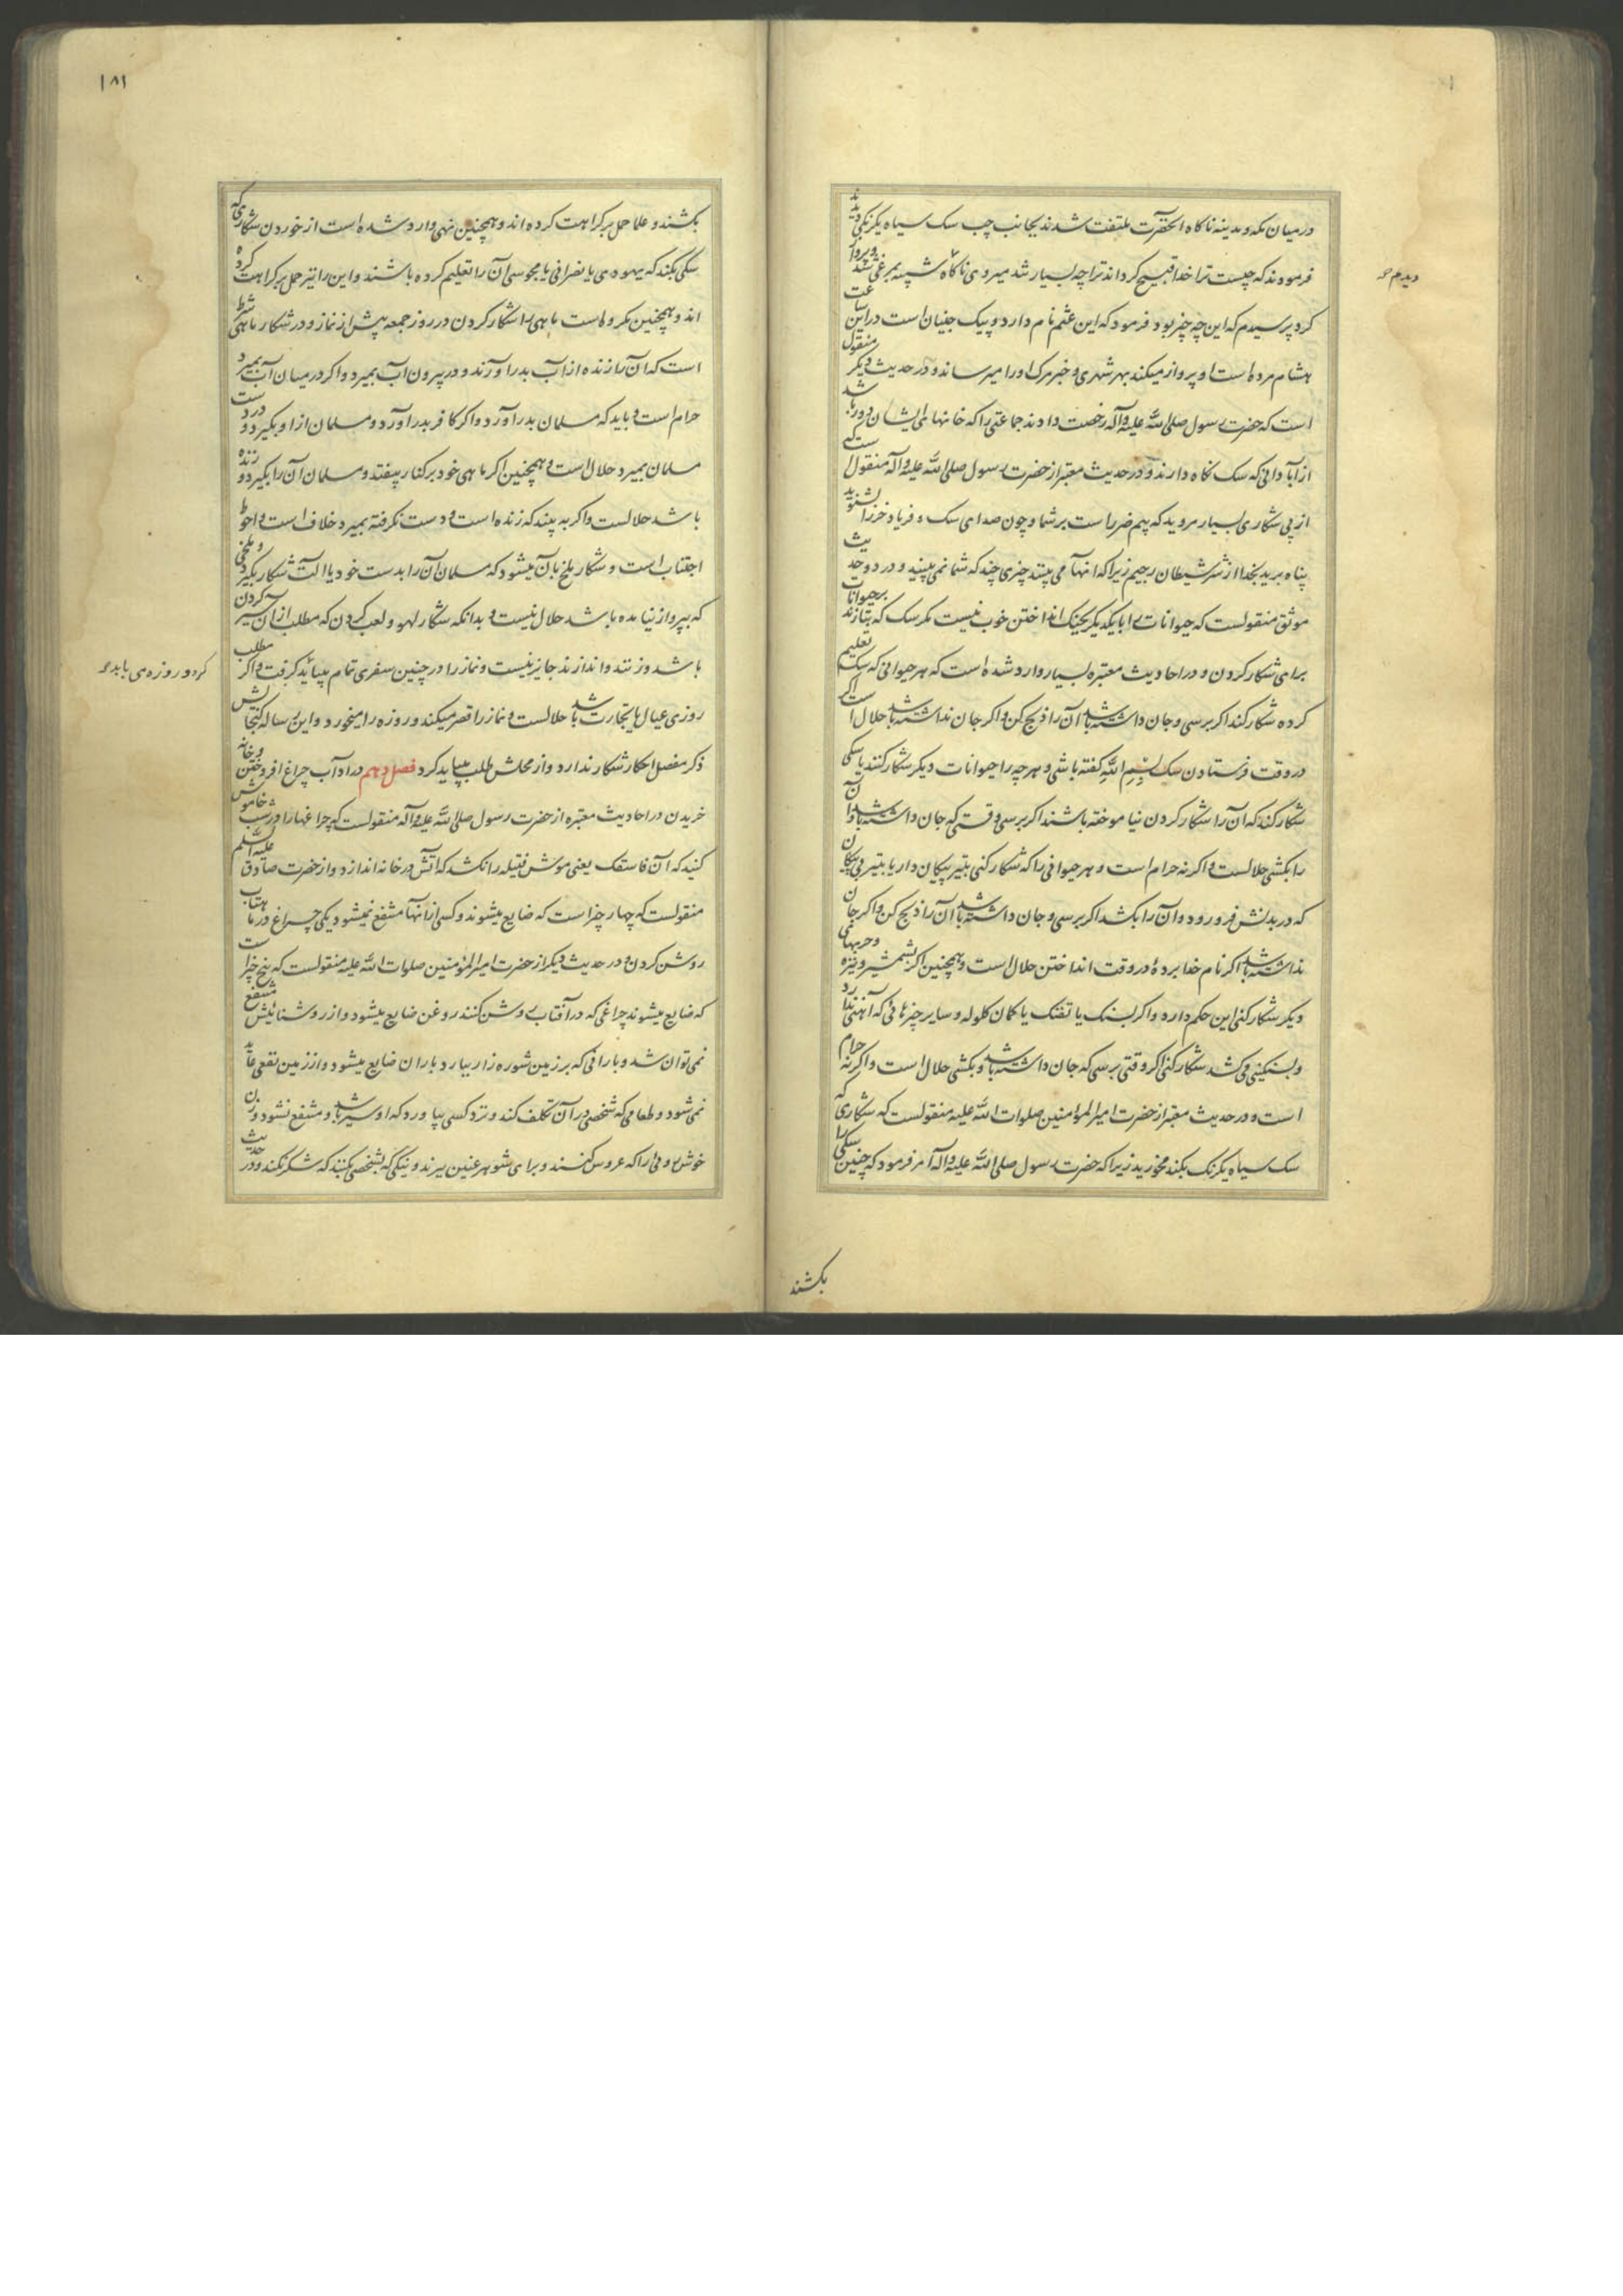 درمیان مکه و مدینه ناکاه انحضرت ملتفت شدند بجانب چپ سک سیاه یکرنکی دیدند
فرمودند که چیست ترا خدا قبیح کرداند ترا چه بسیار تند میروی ناکاه شبیه بمرغی شد و پرواز
دیدم
کرد پرسیدم که این چه چیز بود فرمود که این عثم نام دارد و پیک جنیان است در این ساعت
هشام مرده است او پرواز میکند بهر شهری و خبر مرک او را میرساند و در حدیث دیکر منقول
است که حضرت رسول صلی الله علیه و آله رخصت دادند جماعتی را که خانهای ایشان دور باشد
از آبادانی که سک نکاه دارند و در حدیث معتبر از حضرت رسول صلی الله علیه و آله منقول است که
از پی شکاری بسیار مروید که بیم ضرر است بر شما و چون صدای سک و فریاد خر را بشنوید
پناه برید بخدا از شر شیطان رجیم زیرا که انها می بینند چیزی چند که شما نمی بینید و در دو حدیث
موثق منقولست که حیوانات را با یکدیکر بجنک انداختن خوب نیست مکر سک که بتازند بر حیوانات
برای شکار کردن و در احادیث معتبره بسیار وارد شده است که هر حیوانی که سک تعلیم
کرده شکار کند اکر برسی و جان داشته باشد آن را ذبح کن و اکر جان نداشته باشد حلال است اکر
در وقت فرستادن سک بسم الله کفته باشی و هر چه را حیوانات دیکر شکار کنند یا سکی
شکار کند که آن را شکار کردن نیاموخته باشند اکر برسی وقتی که جان داشته باشد و آن
را بکشی حلالست و اکرنه حرام است و هر حیوانی را که شکار کنی بتیر پیکان دار یا بتیر بی پیکان
که در بدنش فرو رود و آن را بکشد اکر برسی و جان داشته باشد آن را ذبح کن و اکر جان
نداشته باشد اکر نام خدا برده در وقت انداختن حلال است و همچنین اکر بشمشیر و نیزه و حربهای
دیکر شکار کنی این حکم دارد و اکر بسنک یا تفنک یا کمان کلوله و سایر چیزهائی که آهنی ندارد
و بسنکینی می کشد شکار کنی اکر وقتی برسی که جان داشته باشد و بکشی حلال است و اکرنه حرام
است و در حدیث معتبر از حضرت امیر المؤمنین صلوات الله علیه منقولست که شکاری که
سک سیاه یکرنک بکند مخورید زیرا که حضرت رسول صلی الله علیه و اله امر فرمود که چنین سکی را
بکشند
۱۸۱
بکشند و علما حمل بر کراهت کرده اند و همچنین نهی وارد شده است از خوردن شکاری که
سکی بکند که یهودی یا نصرانی یا مجوسی آن را تعلیم کرده باشند و این را نیز حمل بر کراهت کرده
اند و همچنین مکروه است ماهی را شکار کردن در روز جمعه پیش از نماز و در شکار ماهی شرط
است که آن را زنده از آب بدر آورند و در بیرون آب بمیرد و اکر در میان آب بمیرد
حرام است و باید که مسلمان بدر آورد و اکر کافر بدر آورد و مسلمان از او بکیرد و در دست
مسلمان بمیرد حلال است و همچنین اکر ماهی خود بر کنار بیفتد و مسلمان آن را بکیرد و زنده
باشد حلالست و اکر به بیند که زنده است و دست نکرفته بمیرد خلاف است و احوط
اجتناب است و شکار ملخ بآن میشود که مسلمان آن را بدست خود یا الت شکار بکیرد و ملخی
که بپرواز نیامده باشد حلال نیست و بدانکه شکار لهو و لعب کردن که مطلب از آن سیر کردن
باشد و زنند و اندازند جایز نیست و نماز را در چنین سفری تمام میباید کرفت و اکر مطلب
کرد و روزه می باید
روزی عیال یا تجارت باشد حلالست و نماز را قصر میکند و روزه را میخورد و این رساله کنجایش
ذکر مفصل احکار شکار ندارد و از محلش طلب میباید کرد فصل دهم در اداب چراغ افروختن و خانه
خریدن در احادیث معتبره از حضرت رسول صلی الله علیه و آله منقولست که چراغها را در شب خاموش
کنید که آن فاسقک یعنی موش فتیله را نکشد که اتش در خانه اندازد و از حضرت صادق علیه السلم
منقولست که چهار چیز است که ضایع میشوند و کسی از انها منتفع نمیشود یکی چراغ در ماهتاب
روشن کردن و در حدیث دیکر از حضرت امیر المؤمنین صلوات الله علیه منقولست که پنج چیز است
که ضایع میشوند چراغی که در آفتاب روشن کنند روغن ضایع میشود و از روشنائیش منتفع
نمی توان شد و بارانی که بر زمین شوره زار ببارد باران ضایع میشود و از زمین نفعی عاید
نمی شود و طعامی که شخصی در آن تکلف کند و نزد کسی بیاورد که او سیر باشد و منتفع نشود و زن
خوش روئی را که عروس کنند و برای شوهر عنین ببرند و نیکی که بشخصی بکنند که شکر نکند و در حدیث